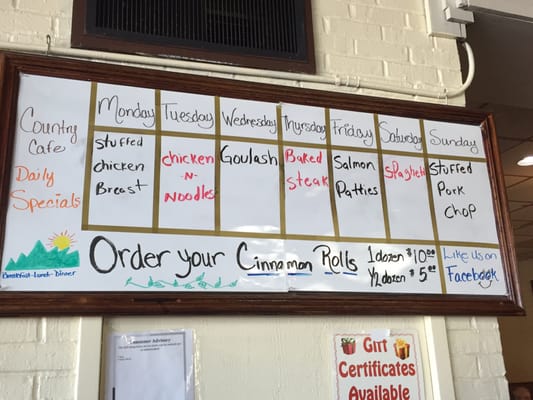 Monday Tuesday Wednesday Thursday Friday Saturday Sunday
Country
Cafe
Daily
Specials
Stuffed
chicken
Breast
chicken
-N-
Noodles
Goulash
Baked
Steak
Salmon
Patties
Spaghetti
Stuffed
Pork
Chop
Breakfast-Lunch-Dinner
Order your Cinnamon Rolls
1 dozen $10.00
1/2 dozen $5.00
Like us on
Facebook
Consumer Advisory
Gift
Certificates
Available